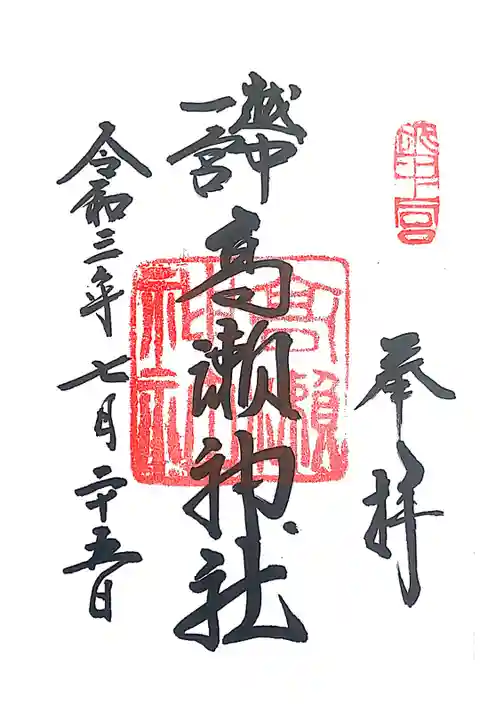 越中一宮
奉拝
越中
一宮
高瀬神社
高瀬神社
令和三年七月二十五日